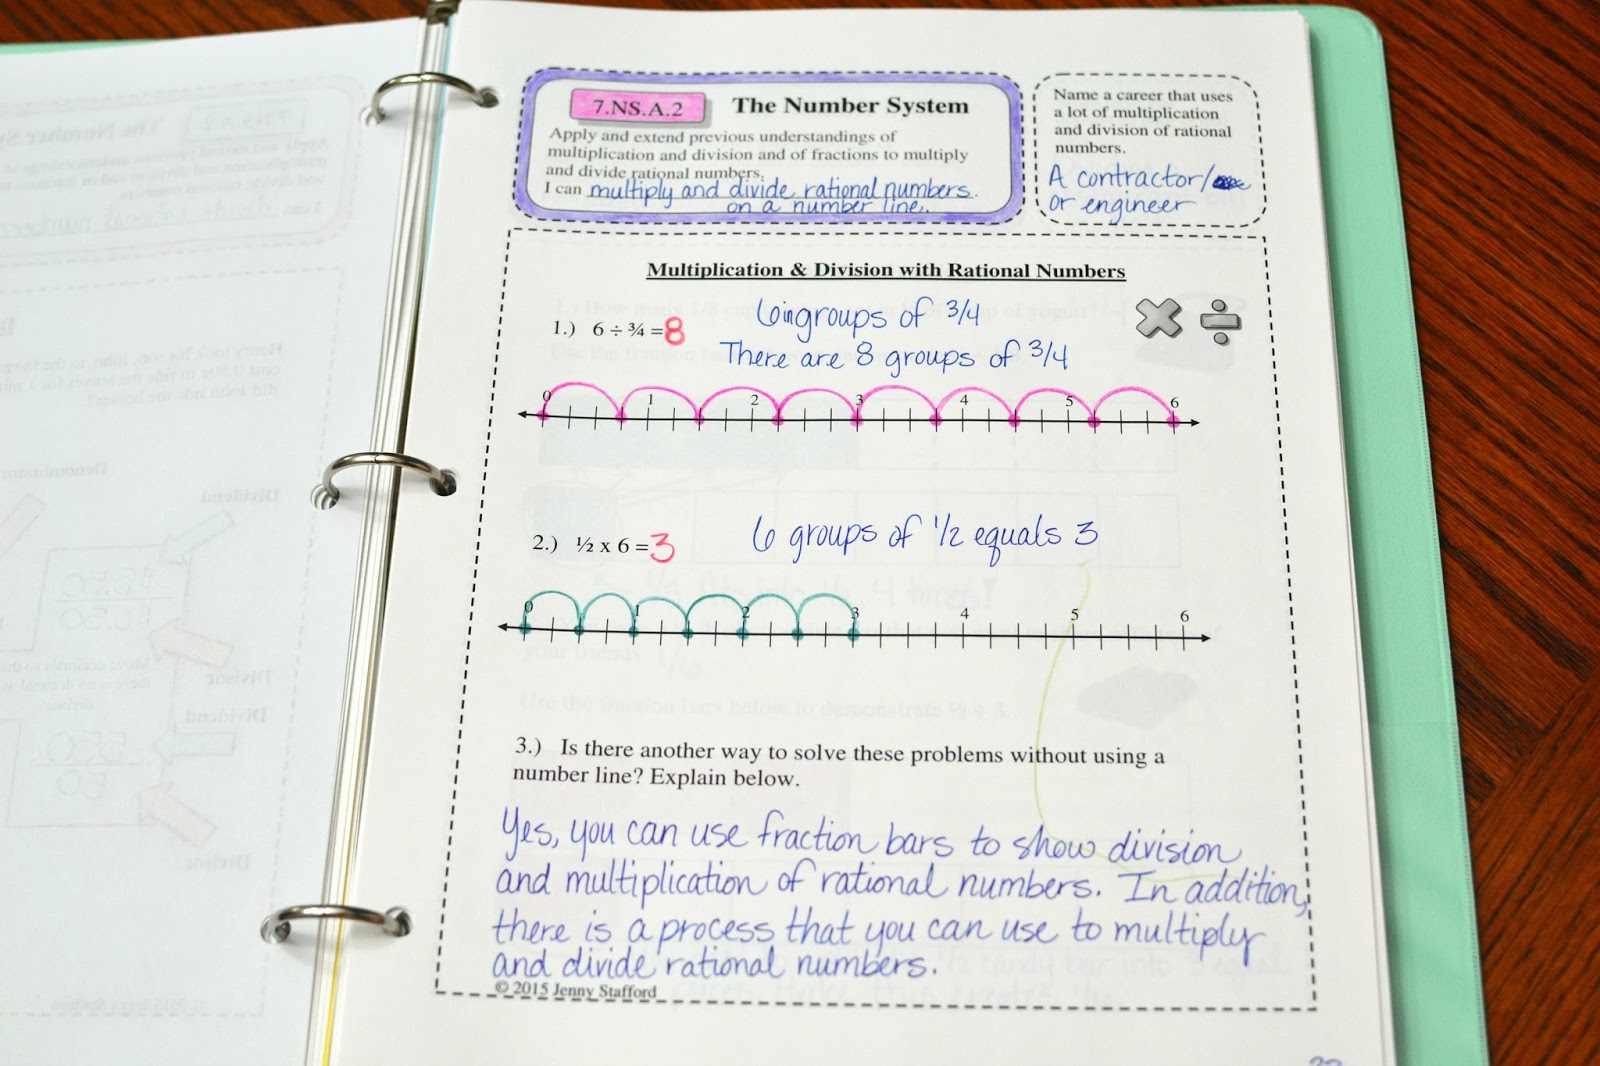 7.NS.A.2 The Number System
Apply and extend previous understandings of
multiplication and division and of fractions to multiply
and divide rational numbers.
I can multiply and divide rational numbers
on a number line.
Name a career that uses
a lot of multiplication
and division of rational
numbers.
A contractor/
or engineer
Multiplication & Division with Rational Numbers
1.) 6 ÷ ¾ = 8
6 in groups of 3/4
There are 8 groups of 3/4
0 1 2 3 4 5 6
2.) ½ x 6 = 3
6 groups of 1/2 equals 3
0 1 2 3 4 5 6
3.) Is there another way to solve these problems without using a
number line? Explain below.
Yes, you can use fraction bars to show division
and multiplication of rational numbers. In addition,
there is a process that you can use to multiply
and divide rational numbers.
© 2015 Jenny Stafford